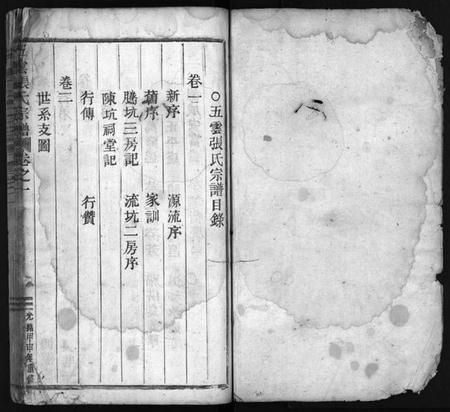 ○五雲張氏宗譜目錄
卷一
新序 源流序
舊序 家訓
騰坑三房記 流坑二房序
陳坑祠堂記
行傳 行贊
卷二
世系支圖
五雲張氏宗譜 卷之一
光緒甲申年重修